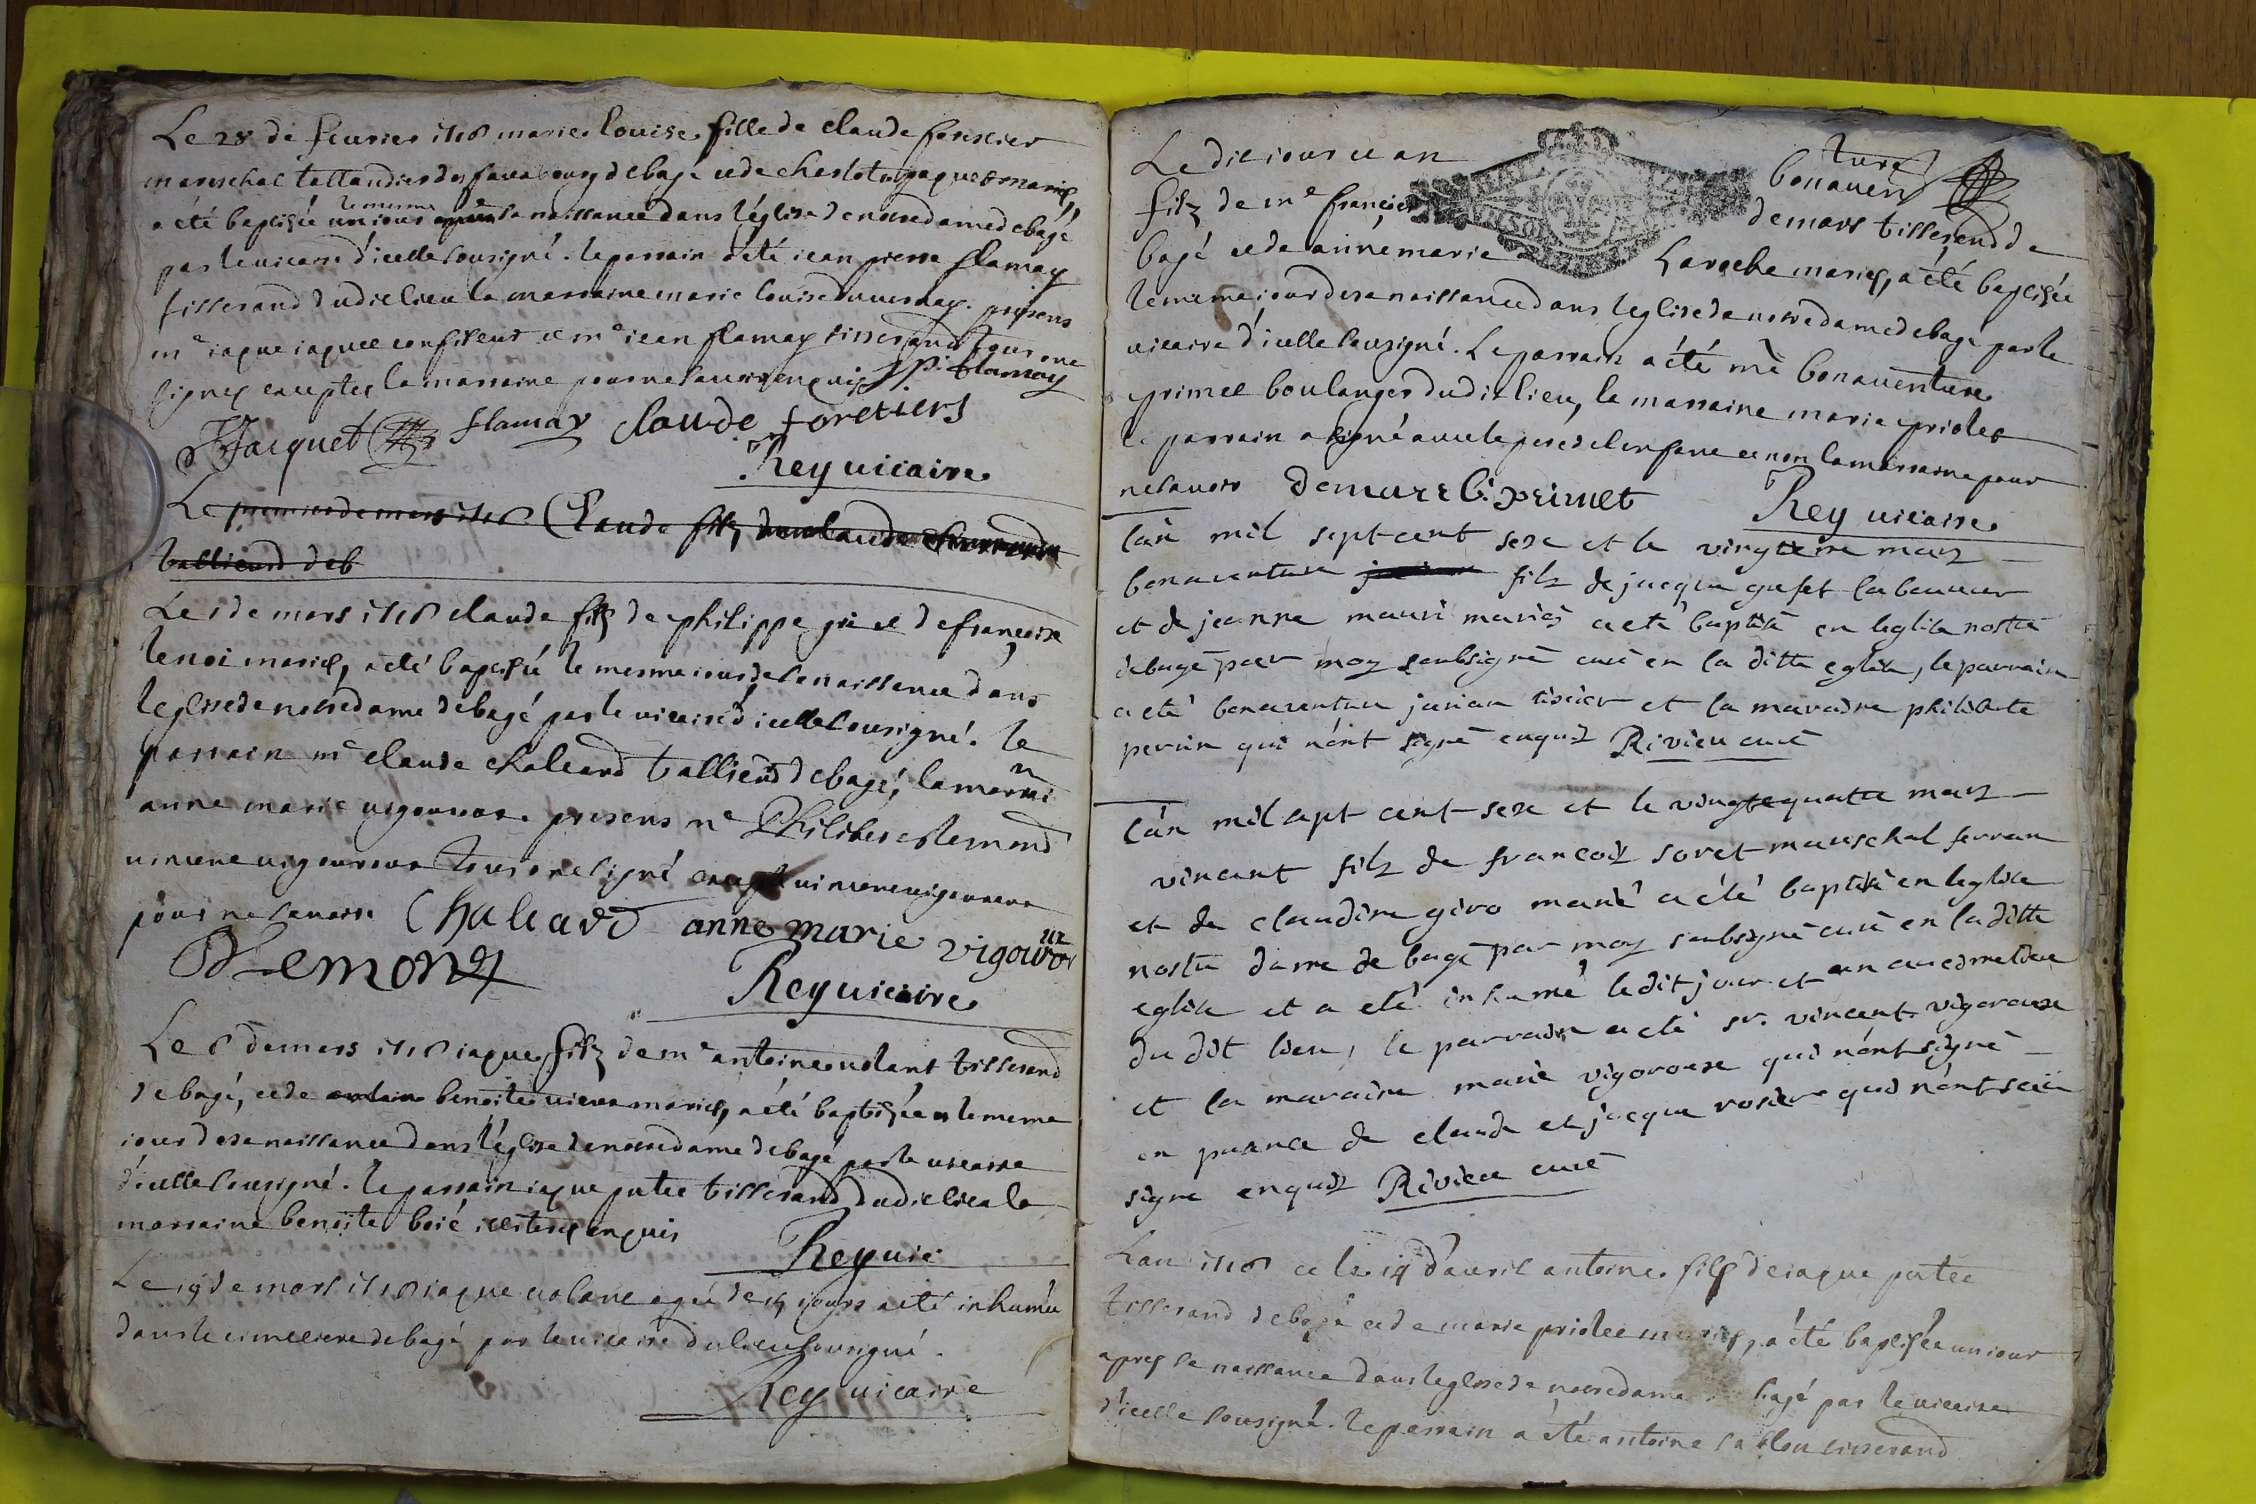 Le 28 de feurier 1716 marie louise fille de claude forestier
mareschal tallandier du fauxbourg de bagé et de charlote jaque mariés,
a été baptisée le mesme jour sa naissance dans l'église de nostredame de bagé
par le vicaire d'icelle sousigné. le parrain a été jean pierre flamay
tisserand dudit lieu la marraine marie louise duvernay. presens
me jaque jaquet confiseur et me jean flamay tisserand tous ont
signés exceptez la marraine pour ne sauoir enquis J p. flamay
JJacquet flamay claude foretiers
Rey uicaire
Le premier de mars 1716 Claude filz de claude
tallieur de b
Le 5 de mars 1716 claude filz de philippe et de françoise
lenoi mariés, a été baptisée le mesme iour de sa naissance dans
leglise de nostredame de bagé par le uicaire d'icelle sousigné. le
parrain me claude chaleard tallieur de bagé, la marrai
ne
anne marie uigouroux. presens me Philibert Lemond
uigouroux tous ont signé uigouroux
pour ne sauoir Chaleard anne marie vigouro
ux
Lemond
Rey uicaire
Le 6 de mars 1716 iaque filz de me antoine uolant tisserand
de bagé, et de benoite mariés, a été baptisée le meme
iour de sa naissance dans l'église de nostredame de bagé par le uicaire
d'icelle sousigné. le parrain iaque putet tisserand dudit lieu la
marraine benoite boié illiterés enquis
Rey uic
Le 19 de mars 1716 iaque uolant agé de 15 iours a été inhumée
dans le cimetiere de bagé par le uicaire du lieu sousigné.
Rey uicaire
Le dit iour et an bonauen
ture
filz de me françois demars tisserend de
bagé et de anne marie Laroche mariés, a été baptisée
le meme iour de sa naissance dans leglise de nostredame de bagé par le
uicaire d'icelle sousigné. Le parrain a été me bonauenture
primet boulanger dudit lieu, la marraine marie priolet
le parrain a signé auec le pere de l'enfant et non la marraine pour
ne sauoir demars b. primet Rey uicaire
l'an mil sept cent seze et le vingtieme mars
bonaventure filz de jacque grefet laboureur
et de jeanne mauri mariés a eté baptisé en leglise nostre
de bagé par moy soubsigné curé en la ditte eglise, le parrain
a eté bonaventure janian tissier et la maraine philiberte
perrin qui n'ont signé enquis Rivieu curé
l'an mil sept cent seze et le vingtequatre mars
vincent filz de francois soret mareschal ferran
et de claudine giro marié a été baptisé en leglise
nostre dame de bagé par moy soubsigné curé en la ditte
eglise et a eté inhumé le dit jour et an au cimetiere
du dit lieu, le parrain a eté sr. vincent vigorouse
et la maraine marie vigorouse qui n'ont signé
en presence de claude et jacque rosier qui n'ont sceu
signe enquis Rivieu curé
Lan 1716 et le 14 d'auril antoine filz de iaque putet
tisserand de bagé et de marie priolet mariés, a été baptisée un iour
apres sa naissance dans leglise de nostredame de bagé par le uicaire
d'icelle sousigné. le parrain a été antoine sablon tisserand